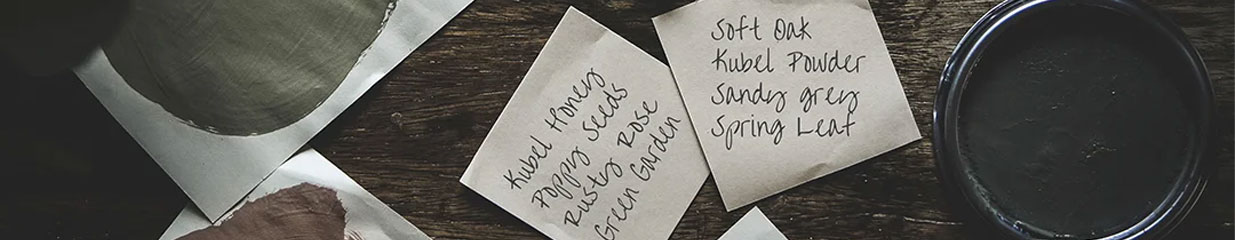 Kubel Honey
Poppy Seeds
Rusty Rose
Green Garden
Soft Oak
Kubel Powder
Sandy grey
Spring Leaf